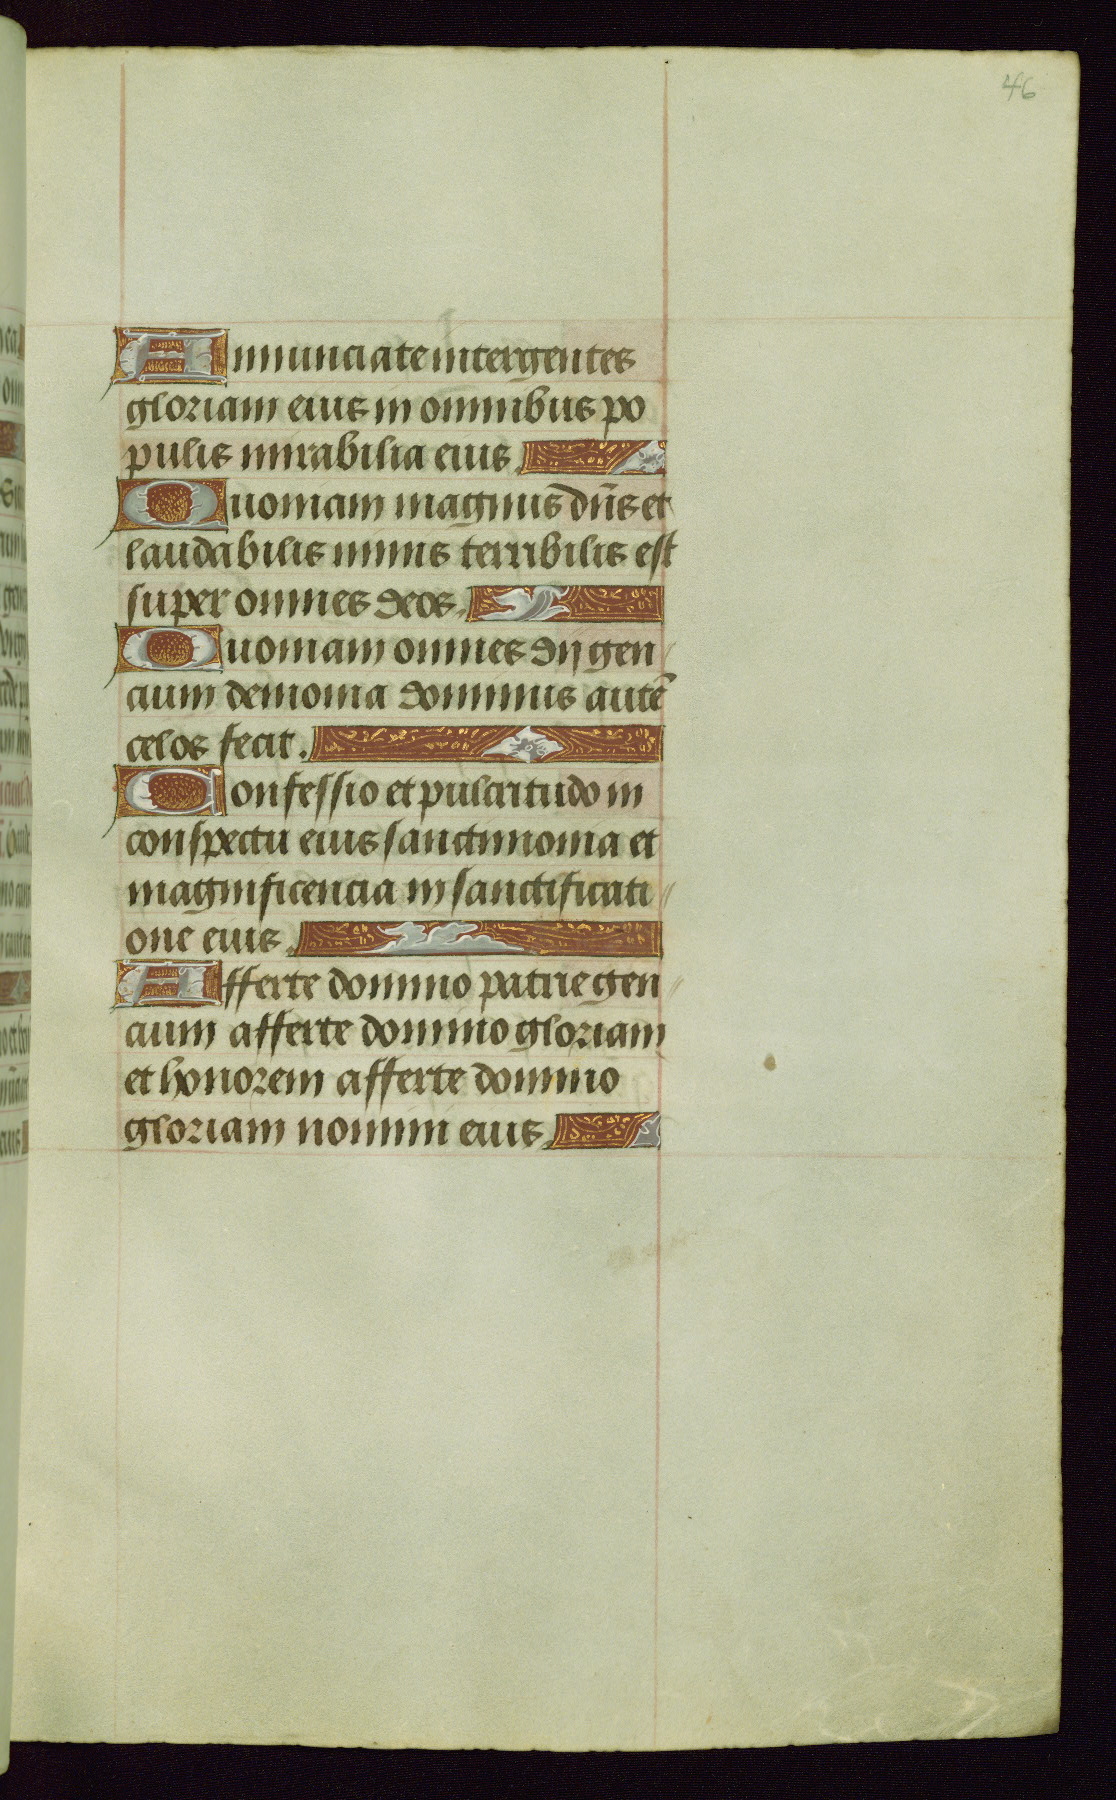 46
Annunciate inter gentes
gloriam eius in omnibus po
pulis mirabilia eius
Quoniam magnus dn̄s et
laudabilis nimis terribilis est
super omnes deos.
Quoniam omnes dij gen
cium demonia dominus autē
celos fecit.
Confessio et pulcritudo in
conspectu eius sanctimonia et
magnificencia in sanctificati
one eius.
Afferte domino patrie gen
cium afferte domino gloriam
et honorem afferte domino
gloriam nomini eius.